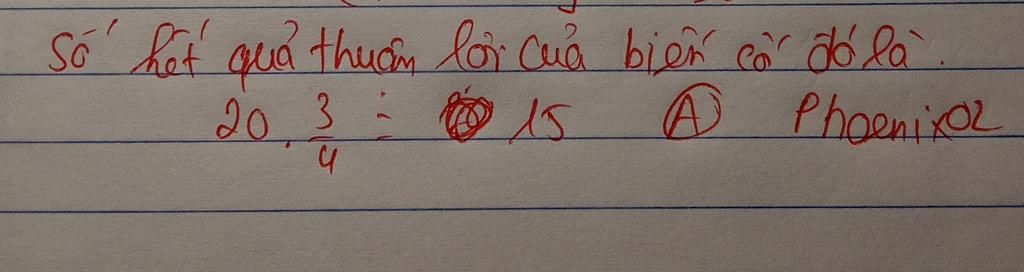 Số kết quả thuận lợi của biến cố đó là.
20 . 3/4 = 15 (A) Phoenix02